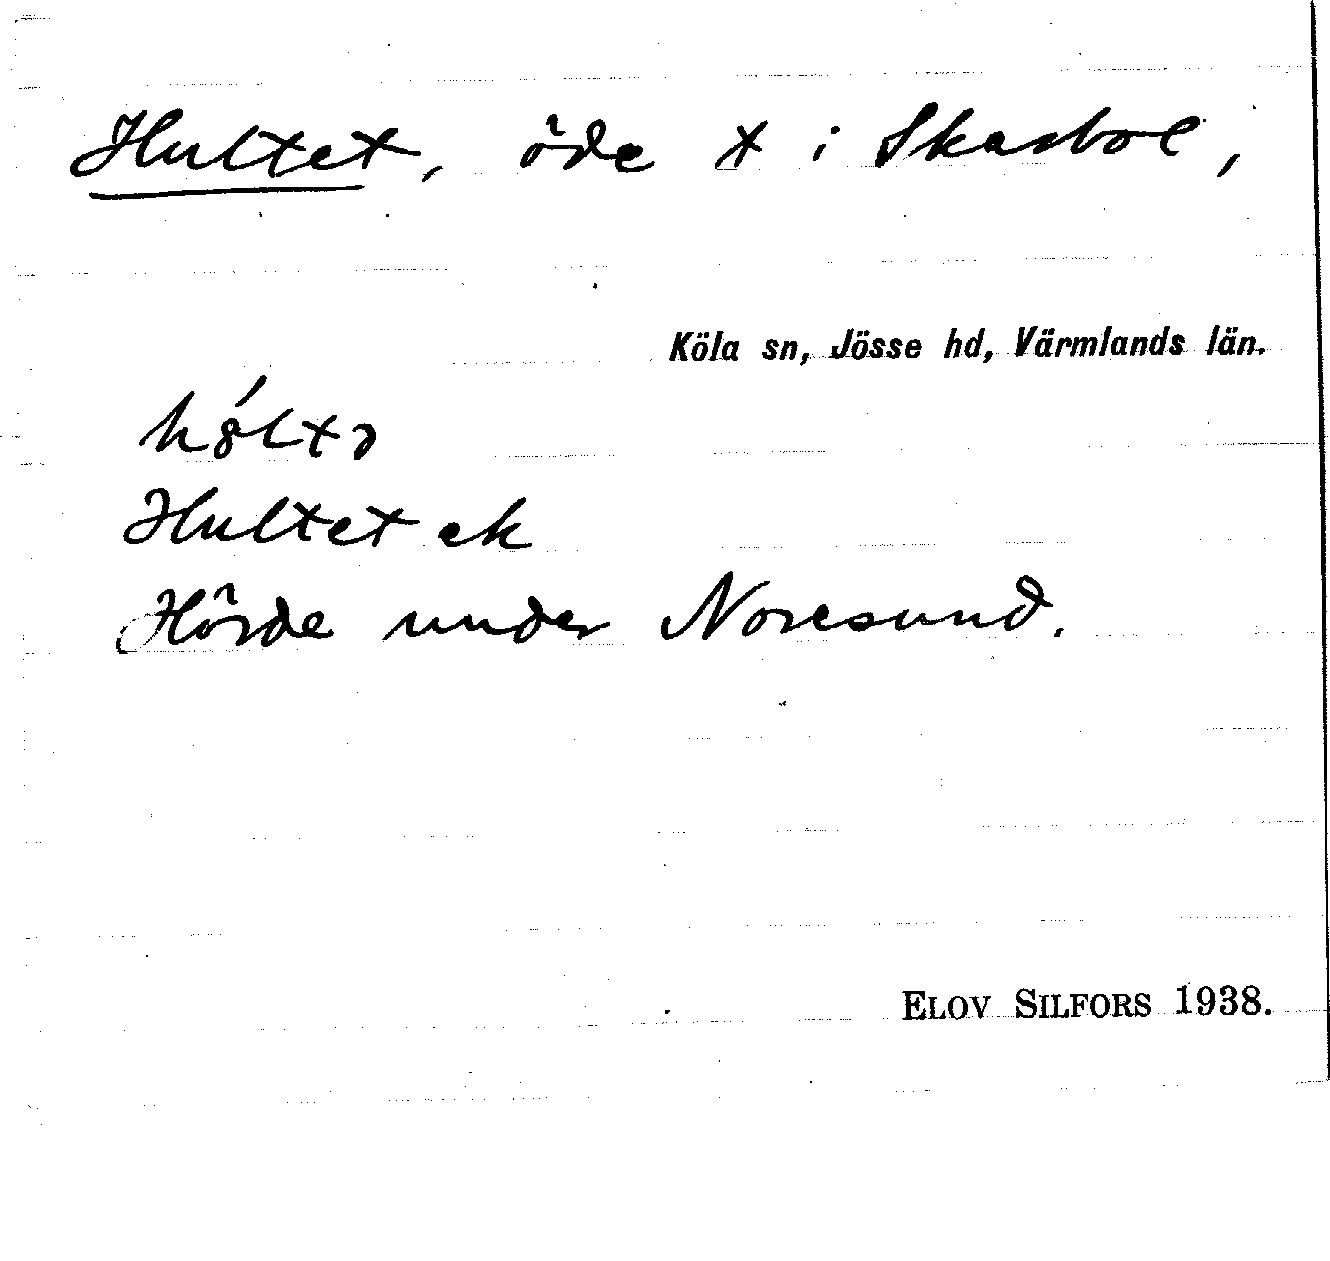 Hultet, öde t i Skasbol,
Köla sn, Jösse hd, Värmlands län.
Hultet ek
Hörde under Noresund.
ELOV SILFORS 1938.